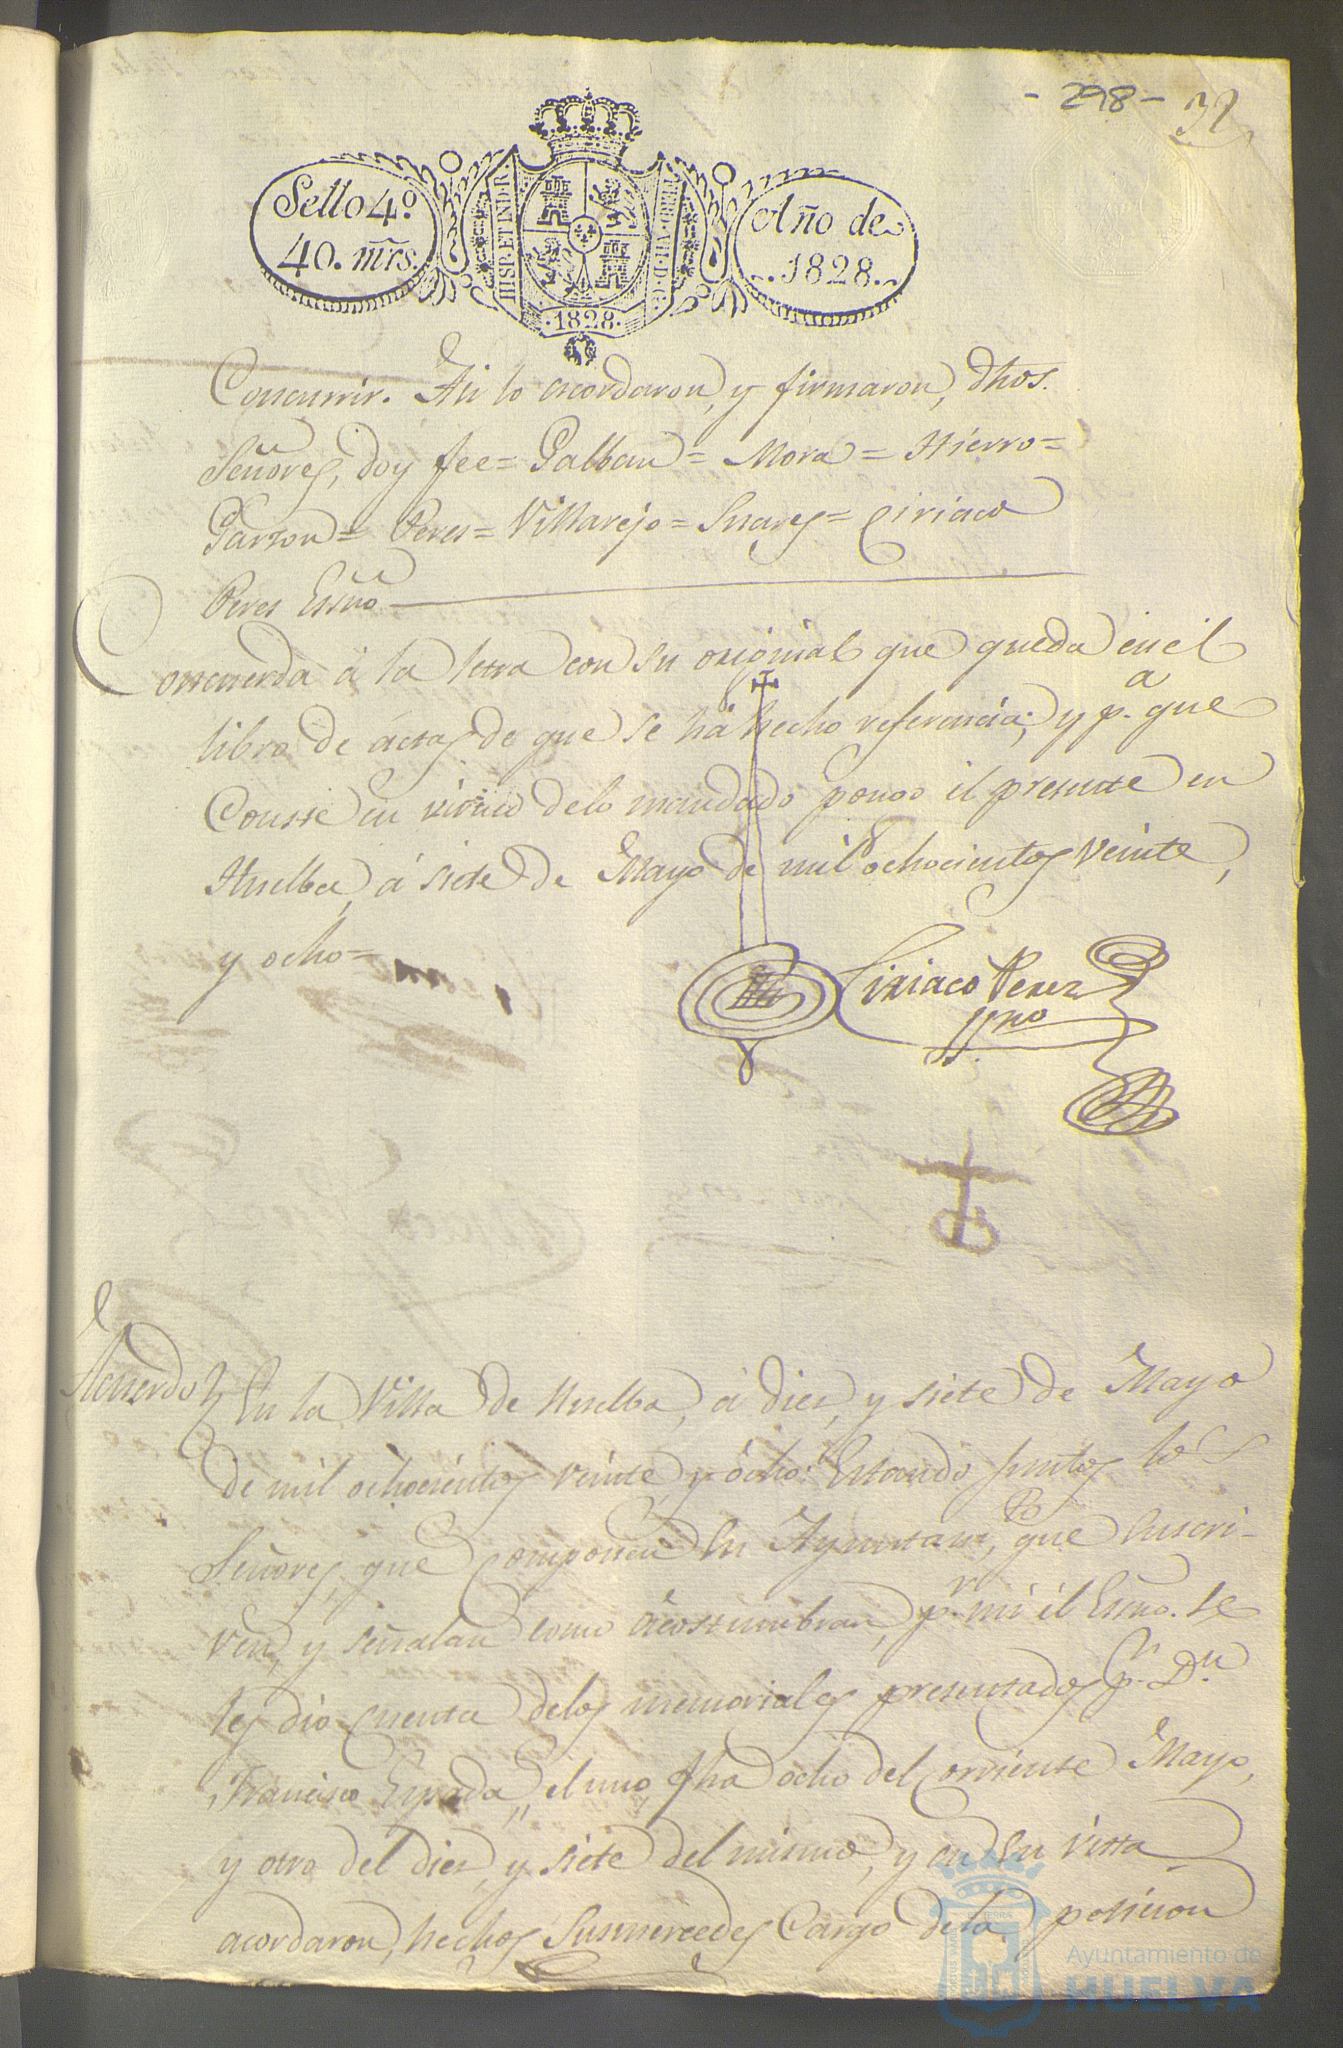 - 298 -
32
Sello 4º
40. mrs.
HISP. ET IND. R.
FERD. VII. D. G.
·1828·
Año de
1828.
Concurrir. Asi lo acordaron, y firmaron, dhos.
Señores, doy fee = Galban = Mora = Hierro =
Garzon = Peres = Villarejo = Suares = Ciriaco
Peres Essno
Concuerda á la letra con su original que queda en el
libro de áctas de que se há hecho referencia; y p.a que
Conste en virtud delo mandado pongo il presente en
Huelba, á siete de Mayo de mil ochocientos veinte,
y ocho =
Ciriaco Perez
SSno
Acuerdo
En la Villa de Huelba, á diez, y siete de Mayo
de mil ochocientos veinte, y ócho: Estando juntos los
Señores, que componen su Ayuntam.to, que suscri-
ven, y señalan como ácostumbran, p.r mi il Esno. se
les dió cuenta delos memoriales presentados p.r D.n
Francisco Espada,, el uno fha ocho del corriente Mayo,
y otro del diez, y siete del mismo, y en su vista
acordaron, hechos Susmercedes Cargo de la peticion
Ayuntamiento de
HUELVA